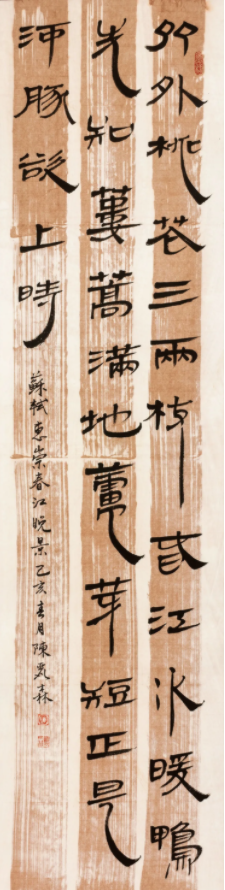 竹外桃花三兩枝春江水暖鴨
先知蔞蒿滿地蘆芽短正是
河豚欲上時
蘇軾惠崇春江晚景亥春月陳森